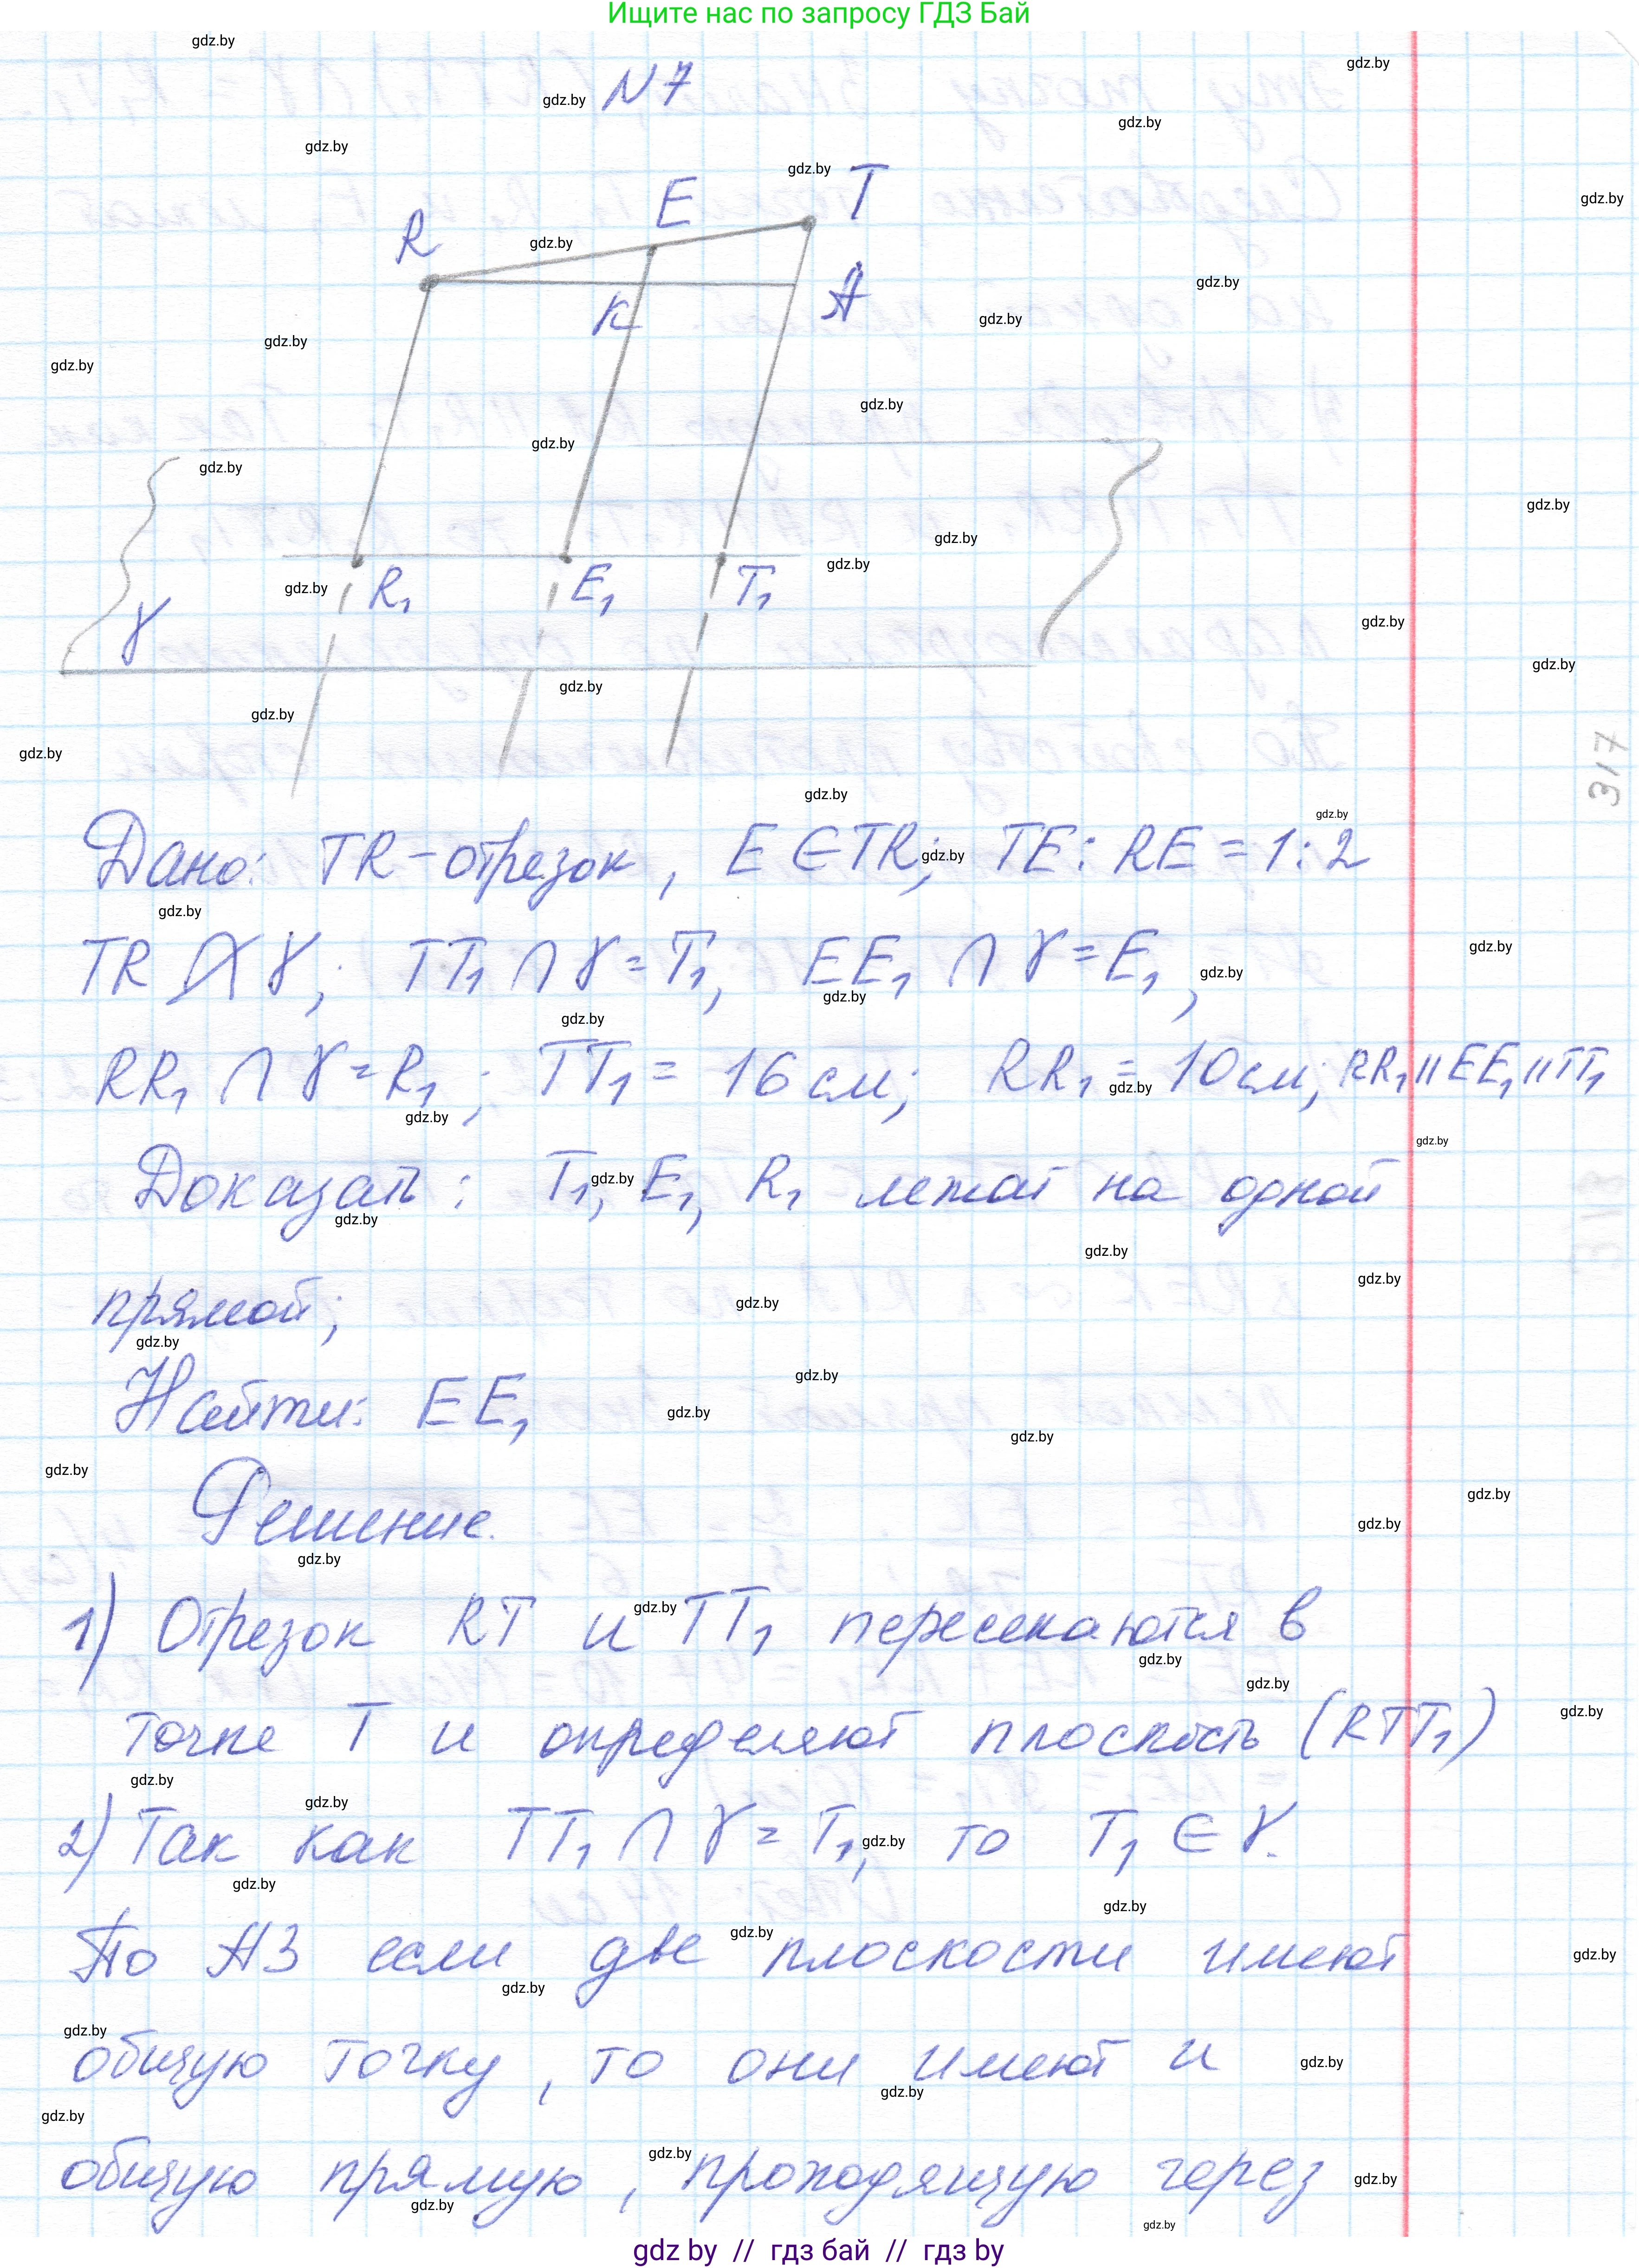 Ищите нас по запросу ГДЗ Бай
N 7
R E T
K A
R₁ E₁ T₁
γ
317
Дано: TR-отрезок, E∈TR; TE:RE=1:2
TR ⊄ γ; TT₁ ∩ γ = T₁, EE₁ ∩ γ = E₁,
RR₁ ∩ γ = R₁; TT₁ = 16 см; RR₁ = 10 см; RR₁ || EE₁ || TT₁
Доказать: T₁, E₁, R₁ лежат на одной
прямой;
Найти: EE₁
Решение.
1) Отрезок RT и TT₁ пересекаются в
точке T и определяют плоскость (RTT₁)
2) Так как TT₁ ∩ γ = T₁, то T₁ ∈ γ.
По А3 если две плоскости имеют
общую точку, то они имеют и
общую прямую, проходящую через
gdz by // гдз бай // гдз by